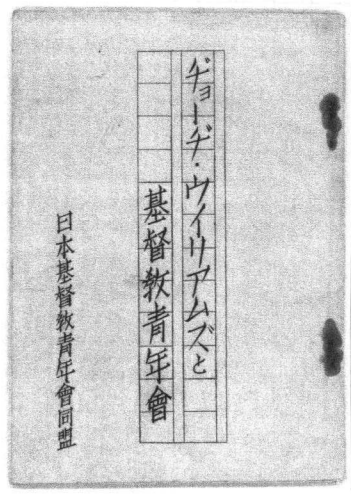 ヂョーヂ・ウイリアムズと
基督教青年會
日本基督教青年會同盟